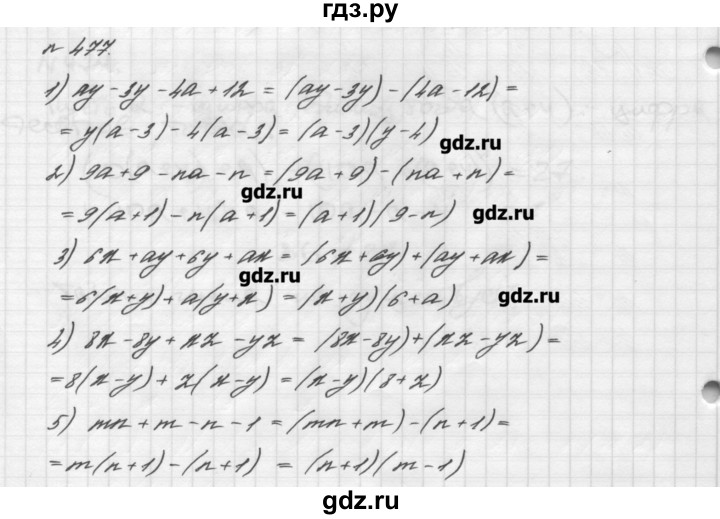 гдз.ру
№ 477.
1) ay - 3y - 4a + 12 = (ay - 3y) - (4a - 12) =
= y(a - 3) - 4(a - 3) = (a - 3)(y - 4)
gdz.ru
2) 9a + 9 - na - n = (9a + 9) - (na + n) =
gdz.ru
= 9(a + 1) - n(a + 1) = (a + 1)(9 - n)
gdz.ru
3) 6x + ay + 6y + ax = (6x + 6y) + (ay + ax) =
gdz.ru
= 6(x + y) + a(y + x) = (x + y)(6 + a)
gdz.ru
4) 8x - 8y + xz - yz = (8x - 8y) + (xz - yz) =
= 8(x - y) + z(x - y) = (x - y)(8 + z)
5) mn + m - n - 1 = (mn + m) - (n + 1) =
= m(n + 1) - (n + 1) = (n + 1)(m - 1)
gdz.ru